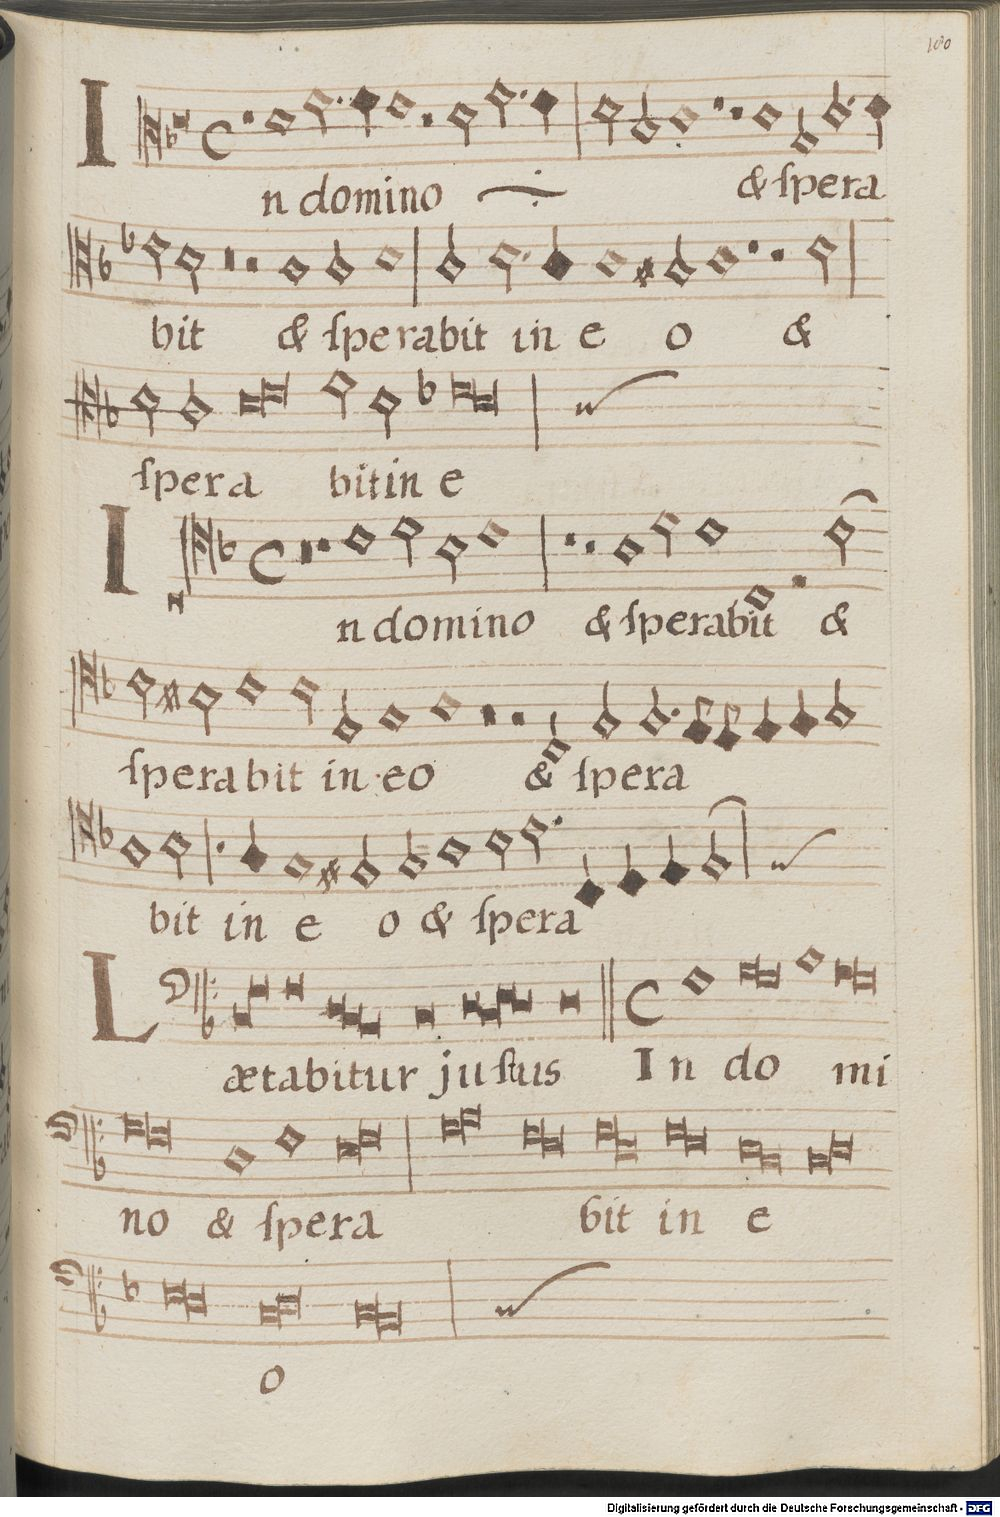 100
In domino & spera
bit & sperabit in e o &
spera bit in e
In domino & sperabit &
sperabit in eo & spera
bit in e o & spera
Lætabitur justus In do mi
no & spera bit in e
o
Digitalisierung gefördert durch die Deutsche Forschungsgemeinschaft - DFG